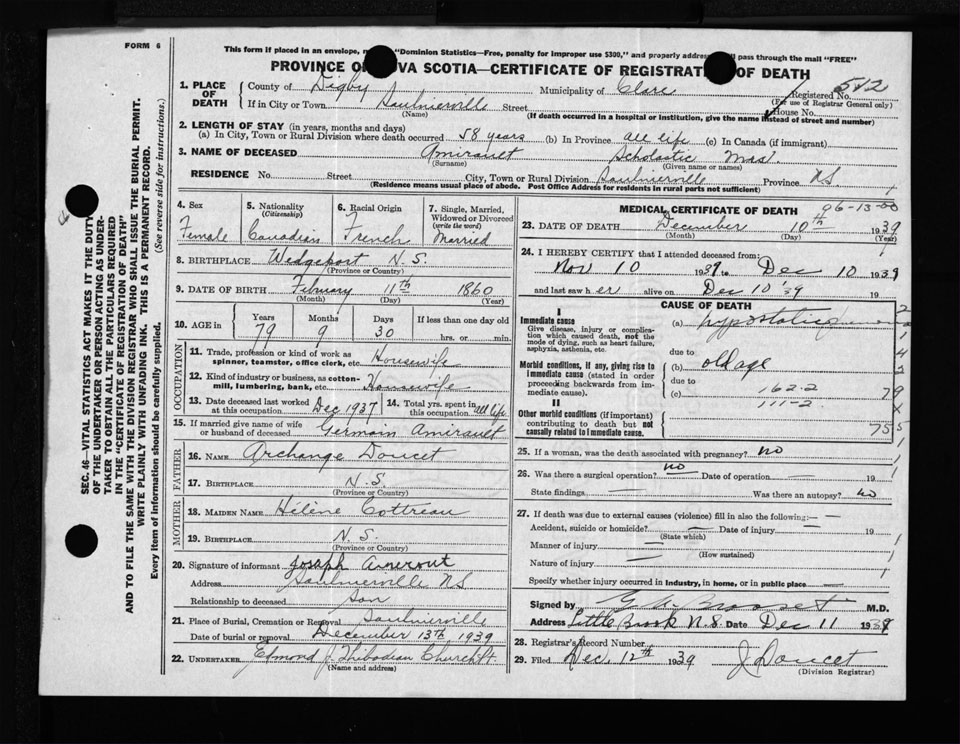 FORM 6
This form if placed in an envelope, "Dominion Statistics—Free, penalty for improper use $300," and properly addres pass through the mail "FREE"
PROVINCE O VA SCOTIA—CERTIFICATE OF REGISTRAT OF DEATH
1. PLACE OF DEATH
County of Digby Municipality of Clare Registered No. 512
(For use of Registrar General only)
If in City or Town Saulnierville Street House No.
(Name) (If death occurred in a hospital or institution, give the name instead of street and number)
2. LENGTH OF STAY (in years, months and days)
(a) In City, Town or Rural Division where death occurred 58 years (b) In Province all life (c) In Canada (if immigrant)
3. NAME OF DECEASED Amirault Scholastic Mrs.
(Surname) (Given name or names)
RESIDENCE No. Street City, Town or Rural Division Saulnierville Province NS
(Residence means usual place of abode. Post Office Address for residents in rural parts not sufficient)
4. Sex Female
5. Nationality (Citizenship) Canadian
6. Racial Origin French
7. Single, Married, Widowed or Divorced (write the word) Married
8. BIRTHPLACE Wedgeport N.S.
(Province or Country)
9. DATE OF BIRTH February 11th 1860
(Month) (Day) (Year)
10. AGE in Years Months Days If less than one day old
79 9 30 hrs. or min.
OCCUPATION
11. Trade, profession or kind of work as spinner, teamster, office clerk, etc. Housewife
12. Kind of industry or business, as cotton-mill, lumbering, bank, etc. Housewife
13. Date deceased last worked at this occupation Dec 1937
14. Total yrs. spent in this occupation all life
15. If married give name of wife or husband of deceased Germain Amirault
FATHER
16. NAME Archange Doucet
17. BIRTHPLACE N.S.
(Province or Country)
MOTHER
18. MAIDEN NAME Hélène Cottreau
19. BIRTHPLACE N.S.
(Province or Country)
20. Signature of informant Joseph Amerout
Address Saulnierville NS
Relationship to deceased Son
21. Place of Burial, Cremation or Removal Saulnierville
Date of burial or removal December 13th, 1939
22. UNDERTAKER Edmond J. Thibodeau Churchpt.
(Name and address)
MEDICAL CERTIFICATE OF DEATH 96-13-50
23. DATE OF DEATH December 10th 1939
(Month) (Day) (Year)
24. I HEREBY CERTIFY that I attended deceased from:
Nov 10 1939 to Dec 10 1939
and last saw h er alive on Dec 10/39 19
CAUSE OF DEATH
I
Immediate cause
Give disease, injury or complication which caused death, not the mode of dying, such as heart failure, asphyxia, asthenia, etc.
(a) hypostatic
due to
Morbid conditions, if any, giving rise to immediate cause (stated in order proceeding backwards from immediate cause).
(b) old age
due to
(c) 162-2
111-2
79
II
Other morbid conditions (if important) contributing to death but not causally related to immediate cause.
75
25. If a woman, was the death associated with pregnancy? no
26. Was there a surgical operation? no Date of operation — 19
State findings — Was there an autopsy? no
27. If death was due to external causes (violence) fill in also the following:—
Accident, suicide or homicide? — Date of injury — 19
(State which)
Manner of injury —
(How sustained)
Nature of injury —
Specify whether injury occurred in industry, in home, or in public place —
Signed by M.D.
Address Little Brook N.S. Date Dec 11 1939
28. Registrar's Record Number
29. Filed Dec. 12th 1939 J Doucet
(Division Registrar)
SEC. 46—VITAL STATISTICS ACT MAKES IT THE DUTY
OF THE UNDERTAKER OR PERSON ACTING AS UNDER-
TAKER TO OBTAIN ALL THE PARTICULARS REQUIRED
IN THE "CERTIFICATE OF REGISTRATION OF DEATH"
AND TO FILE THE SAME WITH THE DIVISION REGISTRAR WHO SHALL ISSUE THE BURIAL PERMIT.
WRITE PLAINLY WITH UNFADING INK. THIS IS A PERMANENT RECORD.
Every item of information should be carefully supplied. (See reverse side for instructions.)